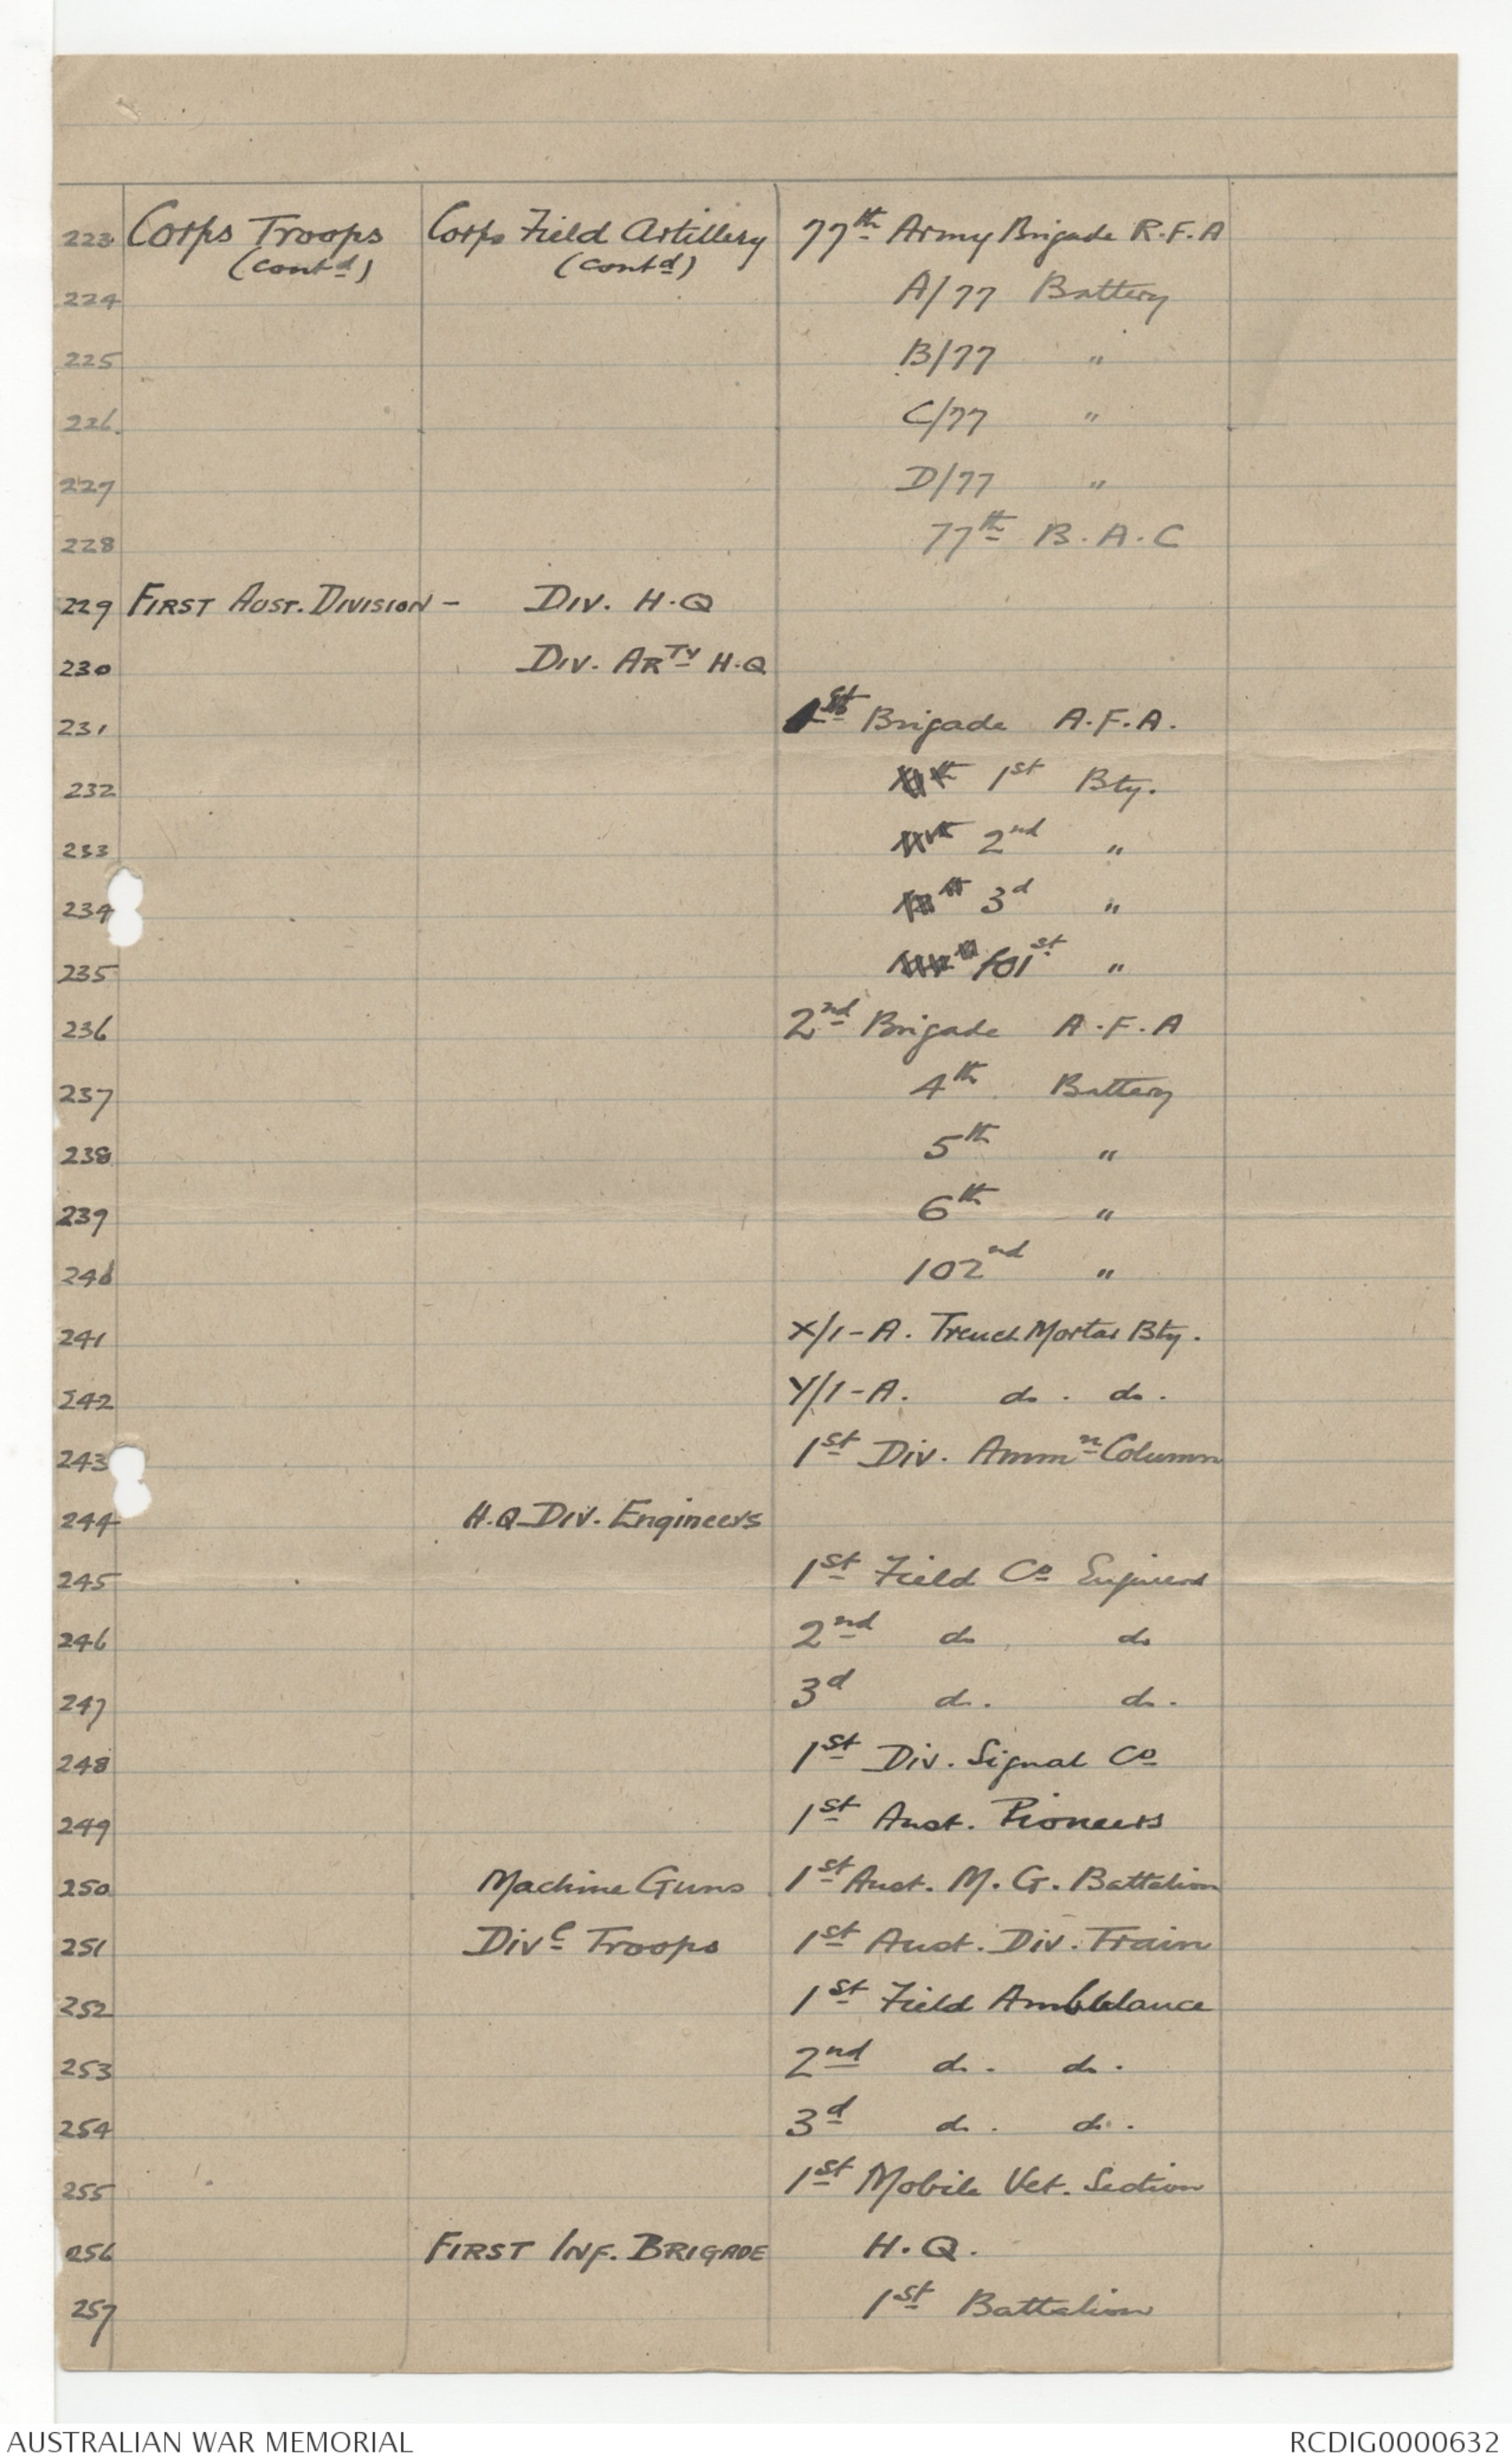 223 Corps Troops Corps Field Artillery 77th Army Brigade R.F.A
(contd) (contd)
224 A/77 Battery
225 B/77 "
226 C/77 "
227 D/77 "
228 77th B.A.C
229 FIRST AUST. DIVISION - DIV. H.Q
230 DIV. ARTY H.Q
231 1st Brigade A.F.A.
232 1st Bty.
233 2nd "
234 3d "
235 101st "
236 2nd Brigade A.F.A
237 4th Battery
238 5th "
239 6th "
240 102nd "
241 X/1-A. Trench Mortar Bty.
242 Y/1-A. do. do.
243 1st Div. Ammn Column
244 H.Q. DIV. Engineers
245 1st Field Co Engineers
246 2nd do do
247 3d do. do.
248 1st Div. Signal Co
249 1st Aust. Pioneers
250 Machine Guns 1st Aust. M.G. Battalion
251 Divl Troops 1st Aust. Div. Train
252 1st Field Ambulance
253 2nd do. do.
254 3d do. do.
255 1st Mobile Vet. Section
256 FIRST INF. BRIGADE H.Q.
257 1st Battalion
AUSTRALIAN WAR MEMORIAL RCDIG0000632